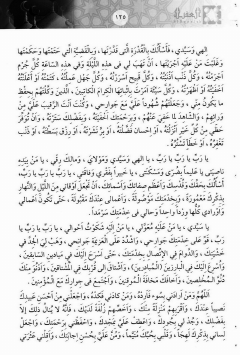 ١٢٥
إلهي وسيدي، فأسألك بالقدرة التي قدرتها، وبالقضية التي حتمتها وحكمتها
وغلبت من عليه أجريتها، أن تهب لي في هذه الليلة وفي هذه الساعة كل جرم
أجرمته، وكل ذنب أذنبته، وكل قبيح أسررته، وكل جهل عملته، كتمته أو أعلنته
أخفيته أو أظهرته، وكل سيئة أمرت بإثباتها الكرام الكاتبين، الذين وكلتهم بحفظ
ما يكون مني، وجعلتهم شهوداً علي مع جوارحي، وكنت أنت الرقيب علي من
ورائهم، والشاهد لما خفي عنهم، وبرحمتك أخفيته، وبفضلك سترته، وأن توفر
حظي من كل خير أنزلته، أو إحسان فضلته، أو بر نشرته، أو رزق بسطته، أو ذنب
تغفره، أو خطأ تستره.
يا رب يا رب يا رب، يا إلهي وسيدي ومولاي، ومالك رقي، يا من بيده
ناصيتي يا عليماً بضري ومسكنتي، يا خبيراً بفقري وفاقتي، يا رب يا رب يا رب،
أسألك بحقك وقدسك وأعظم صفاتك وأسمائك، أن تجعل أوقاتي من الليل والنهار
بذكرك معمورة، وبخدمتك موصولة، وأعمالي عندك مقبولة، حتى تكون أعمالي
وأورادي كلها ورداً واحداً وحالي في خدمتك سرمداً.
يا سيدي، يا من عليه معولي، يا من إليه شكوت أحوالي، يا رب يا رب يا
رب، قو على خدمتك جوارحي، واشدد على العزيمة جوانحي، وهب لي الجد في
خشيتك، والدوام في الاتصال بخدمتك، حتى أسرح إليك في ميادين السابقين،
وأسرع إليك في البارزين (المبادرين)، وأشتاق إلى قربك في المشتاقين، وأدنو منك
دنو المخلصين، وأخافك مخافة الموقنين، وأجتمع في جوارك مع المؤمنين.
اللهم ومن أرادني بسوء فأرده، ومن كادني فكده، واجعلني من أحسن عبيدك
نصيباً عندك، وأقربهم منزلة منك، وأخصهم زلفة لديك، فإنه لا ينال ذلك إلا
بفضلك، وجد لي بجودك، واعطف علي بمجدك، واحفظني برحمتك، واجعل
لساني بذكرك لهجاً، وقلبي بحبك متيماً، ومن علي بحسن إجابتك، وأقلني عثرتي